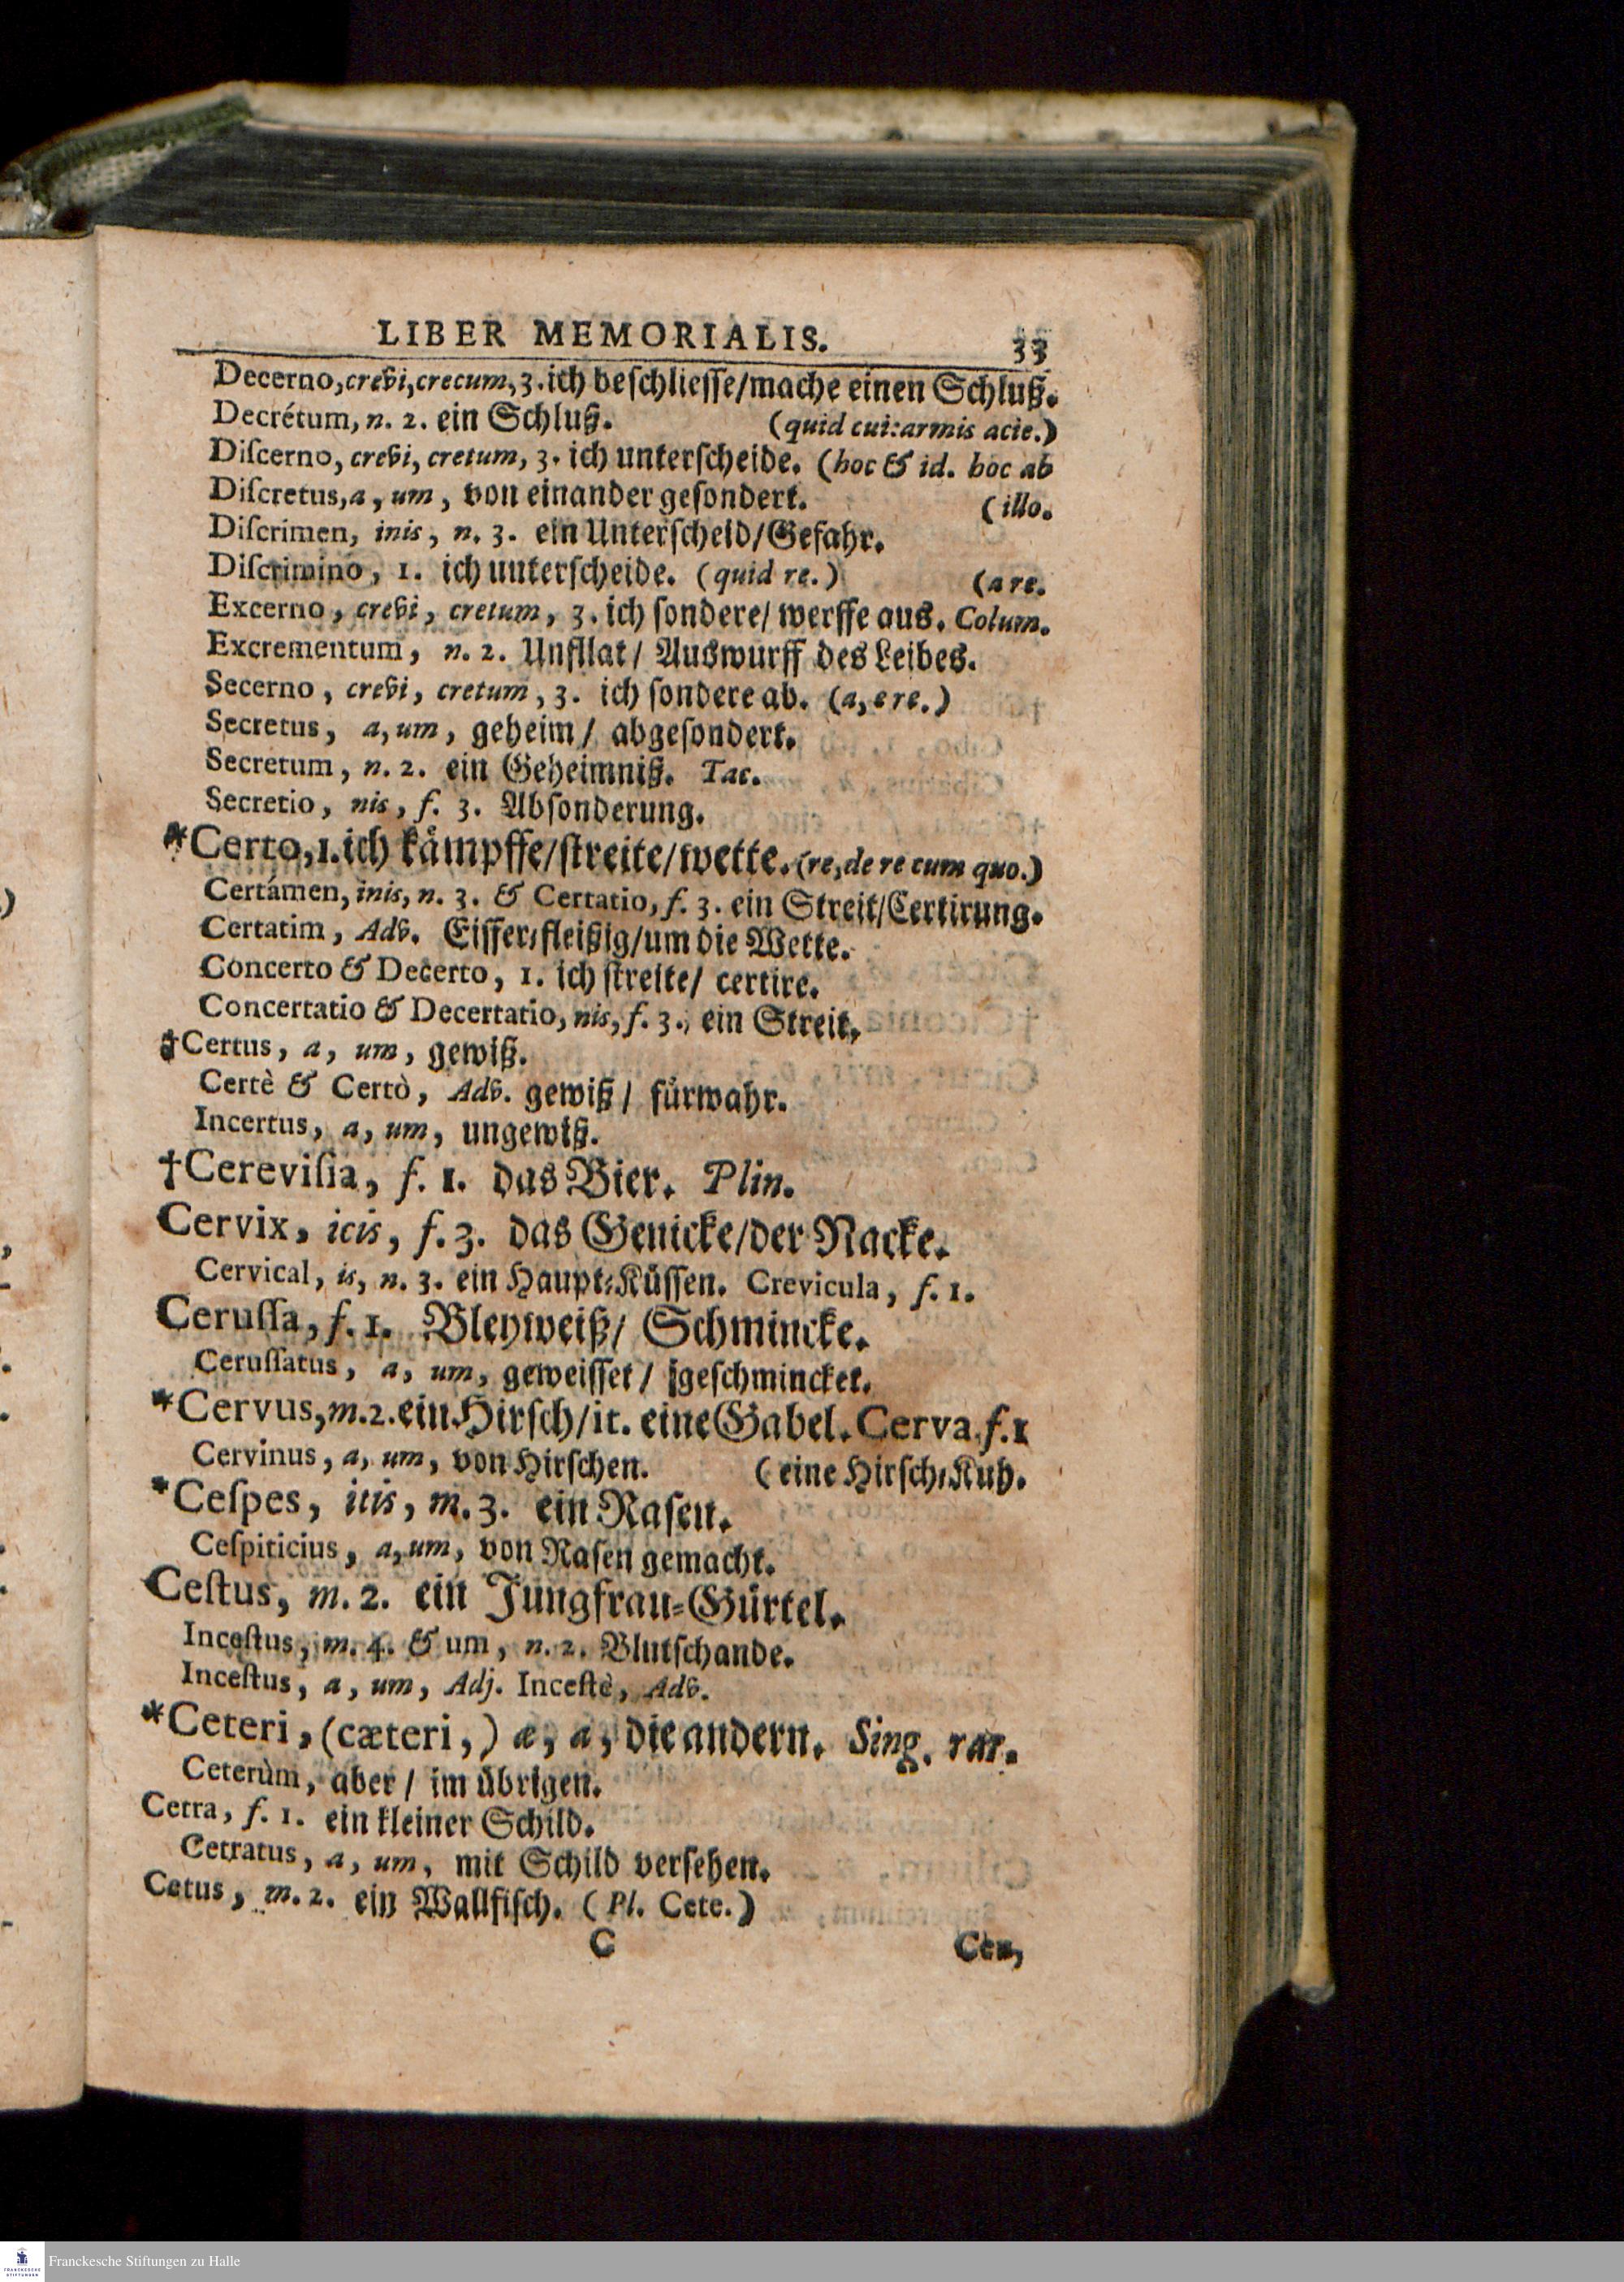 LIBER MEMORIALIS. 33
Decerno, crevi, crecum, 3. ich beſchlieſſe/mache einen Schluß.
Decrétum, n. 2. ein Schluß. (quid cui: armis acie.)
Diſcerno, crevi, cretum, 3. ich unterſcheide. (hoc & id. hoc ab
Diſcretus, a, um, von einander geſondert. (illo.
Diſcrimen, inis, n. 3. ein Unterſcheid/Gefahr.
Diſcrimino, 1. ich unterſcheide. (quid re.) (a re.
Excerno, crevi, cretum, 3. ich ſondere/ werffe aus. Colum.
Excrementum, n. 2. Unflat/ Auswurff des Leibes.
Secerno, crevi, cretum, 3. ich ſondere ab. (a, e re.)
Secretus, a, um, geheim/ abgeſondert.
Secretum, n. 2. ein Geheimniß. Tac.
Secretio, nis, f. 3. Abſonderung.
*Certo, 1. ich kåmpffe/ſtreite/wette. (re, de re cum quo.)
Certámen, inis, n. 3. & Certatio, f. 3. ein Streit/Certirung.
Certatim, Adv. Eiffer-fleißig/um die Wette.
Concerto & Decerto, 1. ich ſtreite/ certire.
Concertatio & Decertatio, nis, f. 3. ein Streit.
†Certus, a, um, gewiß.
Certè & Certò, Adv. gewiß/ fürwahr.
Incertus, a, um, ungewiß.
†Cereviſia, f. 1. das Bier. Plin.
Cervix, icis, f. 3. das Genicke/der Nacke.
Cervical, is, n. 3. ein Haupt-Küſſen. Crevicula, f. 1.
Ceruſſa, f. 1. Bleyweiß/ Schmincke.
Ceruſſatus, a, um, geweiſſet/ geſchmincket.
*Cervus, m. 2. ein Hirſch/it. eine Gabel. Cerva. f. 1
Cervinus, a, um, von Hirſchen. (eine Hirſch-Kuh.
*Ceſpes, itis, m. 3. ein Raſen.
Ceſpiticius, a, um, von Raſen gemacht.
Ceſtus, m. 2. ein Jungfrau-Gürtel.
Inceſtus, m. 4. & um, n. 2. Blutſchande.
Inceſtus, a, um, Adj. Inceſtè, Adv.
*Ceteri, (cæteri,) æ, a, die andern. Sing. rar.
Ceterùm, aber/ im übrigen.
Cetra, f. 1. ein kleiner Schild.
Cetratus, a, um, mit Schild verſehen.
Cetus, m. 2. ein Wallfiſch. (Pl. Cete.)
C Ceu,
Franckesche Stiftungen zu Halle